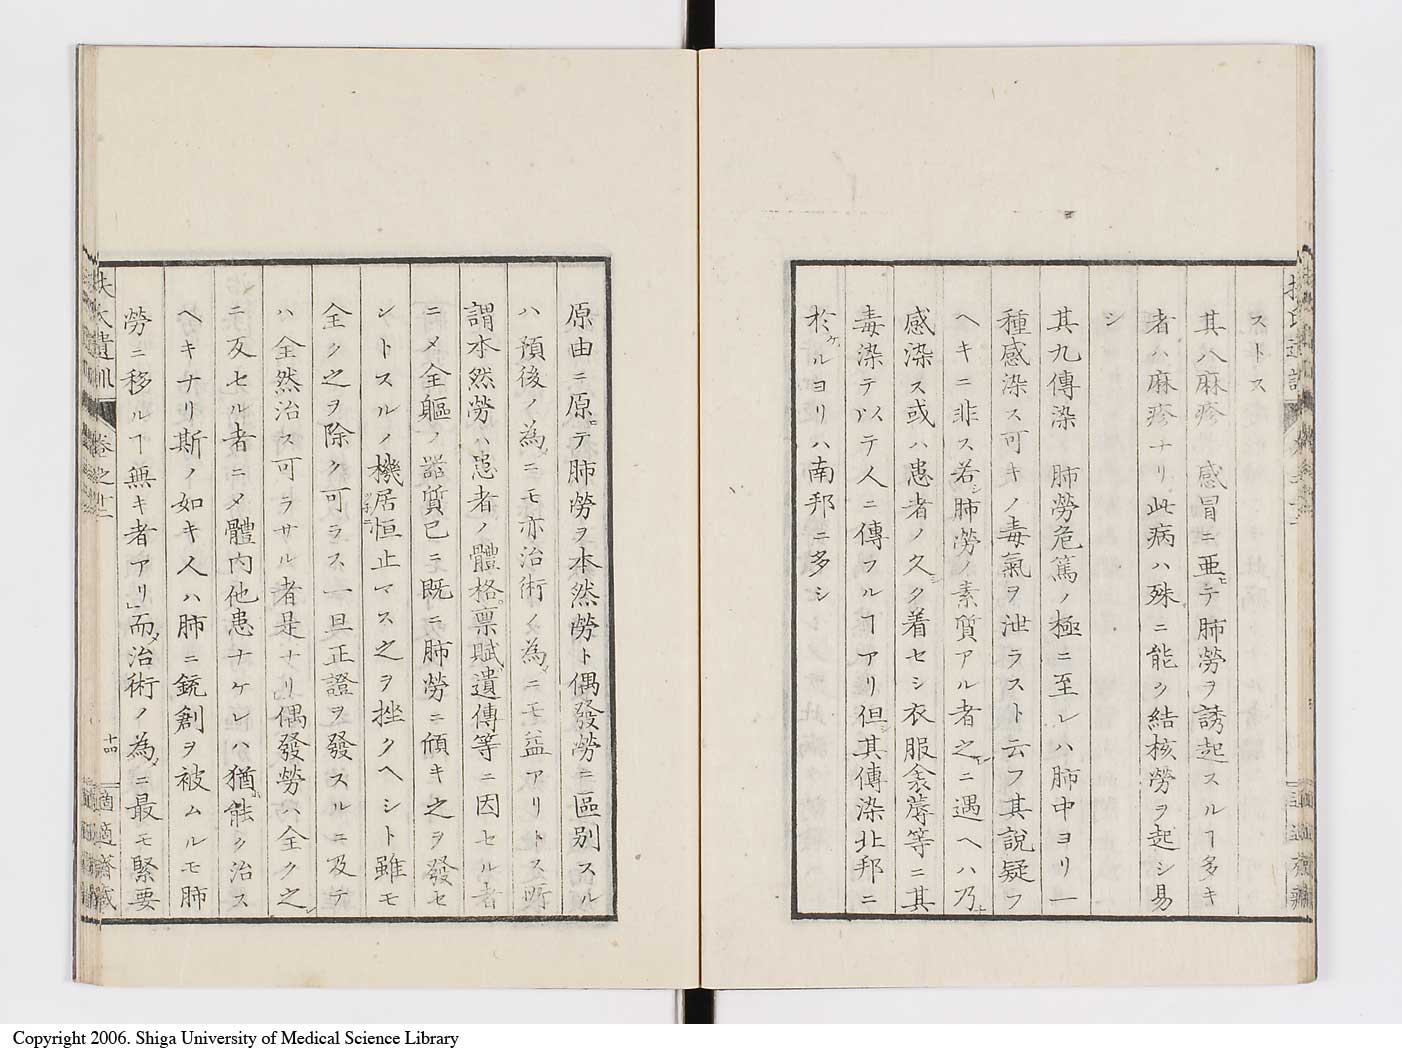 ストス
其八麻疹　感冒ニ亜テ肺勞ヲ誘起スルヿ多キ
者ハ麻疹ナリ此病ハ殊ニ能ク結核勞ヲ起シ易
シ
其九傳染　肺勞危篤ノ極ニ至レハ肺中ヨリ一
種感染ス可キノ毒氣ヲ泄ラスト云フ其說疑フ
ヘキニ非ス若シ肺勞ノ素質アル者之ニ遇ヘハ乃チ
感染ス或ハ患者ノ久シク着セシ衣服衾蓐等ニ其
毒染テ以テ人ニ傳フルヿアリ但シ其傳染北邦ニ
於ケルヨリハ南邦ニ多シ
原由ニ原テ肺勞ヲ本然勞ト偶發勞ニ區別スル
ハ預後ノ為メニモ亦治術ノ為メニモ益アリトス所
謂本然勞ハ患者ノ體格稟賦遺傳等ニ因セル者
ニメ全軀ノ器質已ニ既ニ肺勞ニ傾キ之ヲ發セ
ントスルノ機居恒止マス之ヲ挫クヘシト雖モ
全ク之ヲ除ク可ラス一旦正證ヲ發スルニ及テ
ハ全然治ス可ラサル者是ナリ偶發勞ハ全ク之
ニ反セル者ニメ體内他患ナケレハ猶ホ能ク治ス
ヘキナリ斯ノ如キ人ハ肺ニ銃創ヲ被ムルモ肺
勞ニ移ルヿ無キ者アリ」而メ治術ノ為メニ最モ緊要
扶氏遺訓　卷之十二　十四　適適齋藏